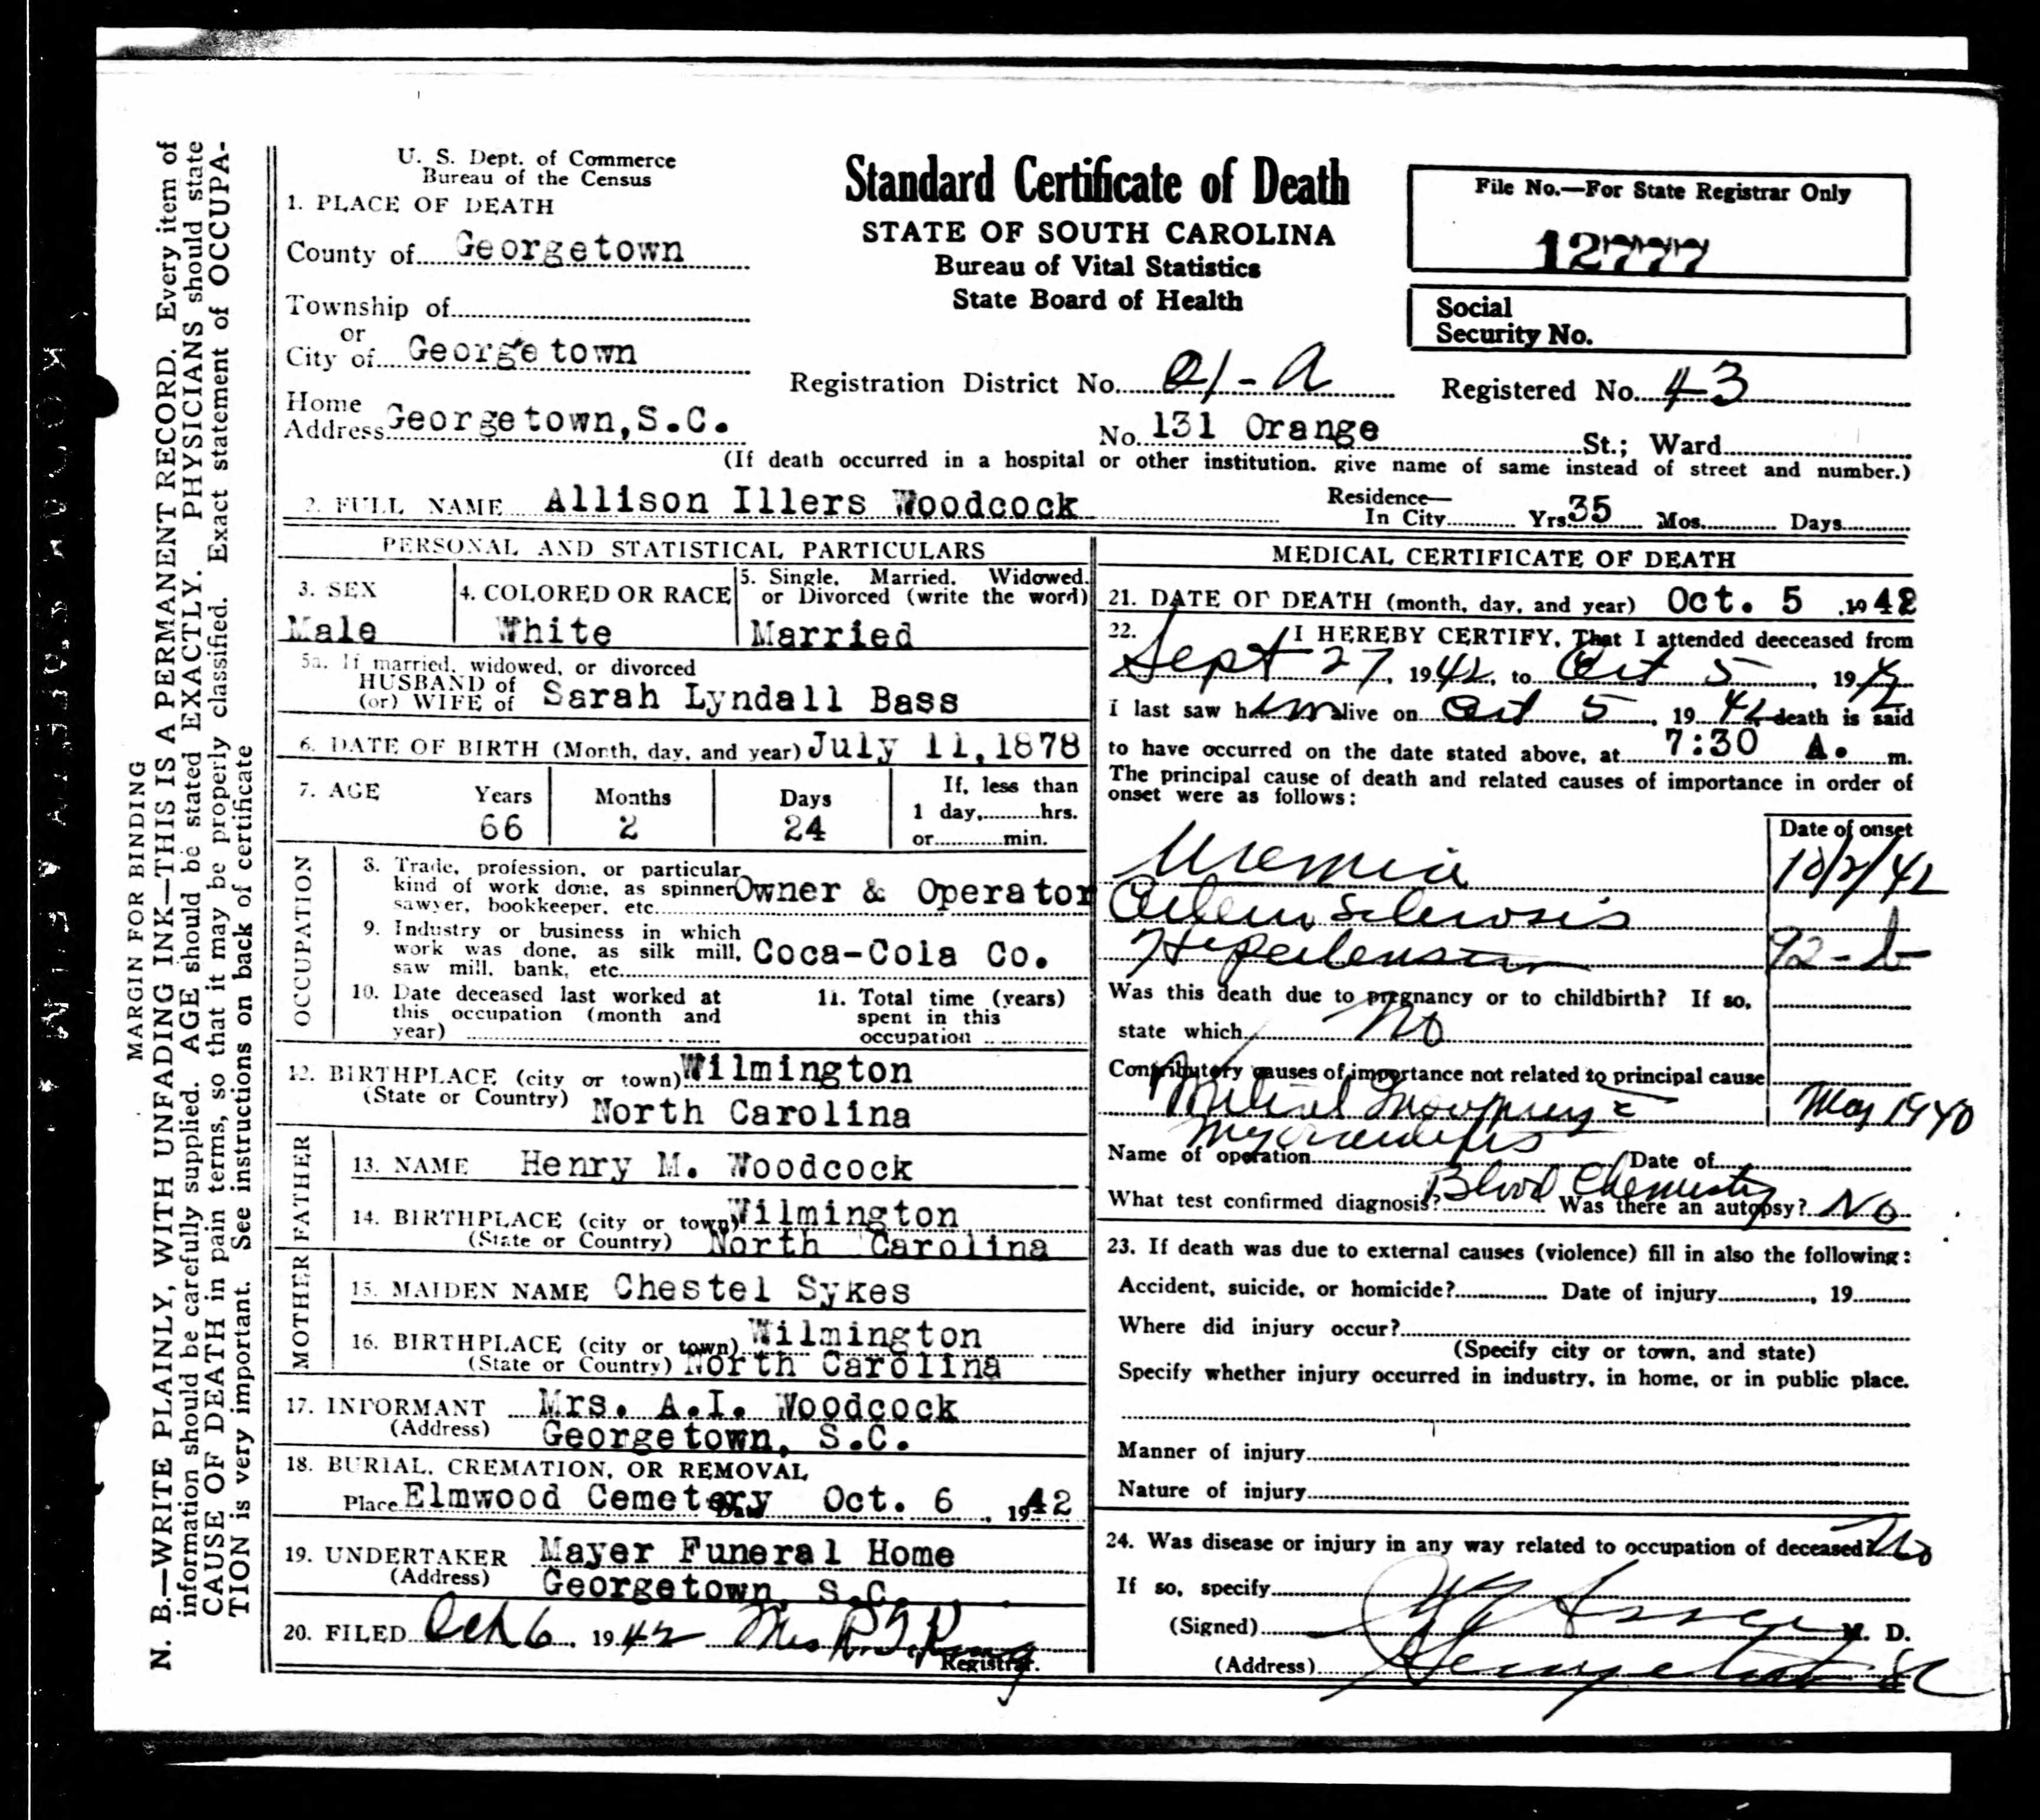 U. S. Dept. of Commerce
Bureau of the Census
Standard Certificate of Death
STATE OF SOUTH CAROLINA
Bureau of Vital Statistics
State Board of Health
File No.—For State Registrar Only
12777
Social
Security No.
1. PLACE OF DEATH
County of Georgetown
Township of
or
City of Georgetown
Registration District No. 21-A
Registered No. 43
Home
Address Georgetown, S.C.
No. 131 Orange St.; Ward
(If death occurred in a hospital or other institution. give name of same instead of street and number.)
2. FULL NAME Allison Illers Woodcock
Residence—
In City Yrs 35 Mos. Days
PERSONAL AND STATISTICAL PARTICULARS
3. SEX
Male
4. COLORED OR RACE
White
5. Single, Married, Widowed,
or Divorced (write the word)
Married
5a. If married, widowed, or divorced
HUSBAND of
(or) WIFE of Sarah Lyndall Bass
6. DATE OF BIRTH (Month, day, and year) July 11, 1878
7. AGE
Years
66
Months
2
Days
24
If, less than
1 day, hrs.
or min.
OCCUPATION
8. Trade, profession, or particular
kind of work done, as spinner
sawyer, bookkeeper, etc. Owner & Operator
9. Industry or business in which
work was done, as silk mill,
saw mill, bank, etc. Coca-Cola Co.
10. Date deceased last worked at
this occupation (month and
year)
11. Total time (years)
spent in this
occupation
12. BIRTHPLACE (city or town) Wilmington
(State or Country) North Carolina
FATHER
13. NAME Henry M. Woodcock
14. BIRTHPLACE (city or town) Wilmington
(State or Country) North Carolina
MOTHER
15. MAIDEN NAME Chestel Sykes
16. BIRTHPLACE (city or town) Wilmington
(State or Country) North Carolina
17. INFORMANT Mrs. A.I. Woodcock
(Address) Georgetown, S.C.
18. BURIAL, CREMATION, OR REMOVAL
Place Elmwood Cemetery Date Oct. 6, 1942
19. UNDERTAKER Mayer Funeral Home
(Address) Georgetown, S.C.
20. FILED Oct 6, 1942 Mrs
Registrar.
MEDICAL CERTIFICATE OF DEATH
21. DATE OF DEATH (month, day, and year) Oct. 5, 1942
22. I HEREBY CERTIFY, That I attended deceased from
Sept 27, 1942, to Oct 5, 1942
I last saw him alive on Oct 5, 1942 death is said
to have occurred on the date stated above, at 7:30 A. m.
The principal cause of death and related causes of importance in order of
onset were as follows:
Date of onset
Uremia 10/2/42
Arterio Sclerosis
Hypertension 92-b
Was this death due to pregnancy or to childbirth? If so,
state which No
Contributory causes of importance not related to principal cause
Mitral May 1940
Myocarditis
Name of operation Date of
What test confirmed diagnosis? Blood Chemistry Was there an autopsy? No
23. If death was due to external causes (violence) fill in also the following:
Accident, suicide, or homicide? Date of injury , 19
Where did injury occur?
(Specify city or town, and state)
Specify whether injury occurred in industry, in home, or in public place.
Manner of injury
Nature of injury
24. Was disease or injury in any way related to occupation of deceased? No
If so, specify
(Signed) M. D.
(Address) Georgetown SC
MARGIN FOR BINDING
N. B.—WRITE PLAINLY, WITH UNFADING INK—THIS IS A PERMANENT RECORD. Every item of
information should be carefully supplied. AGE should be stated EXACTLY. PHYSICIANS should state
CAUSE OF DEATH in pain terms, so that it may be properly classified. Exact statement of OCCUPA-
TION is very important. See instructions on back of certificate